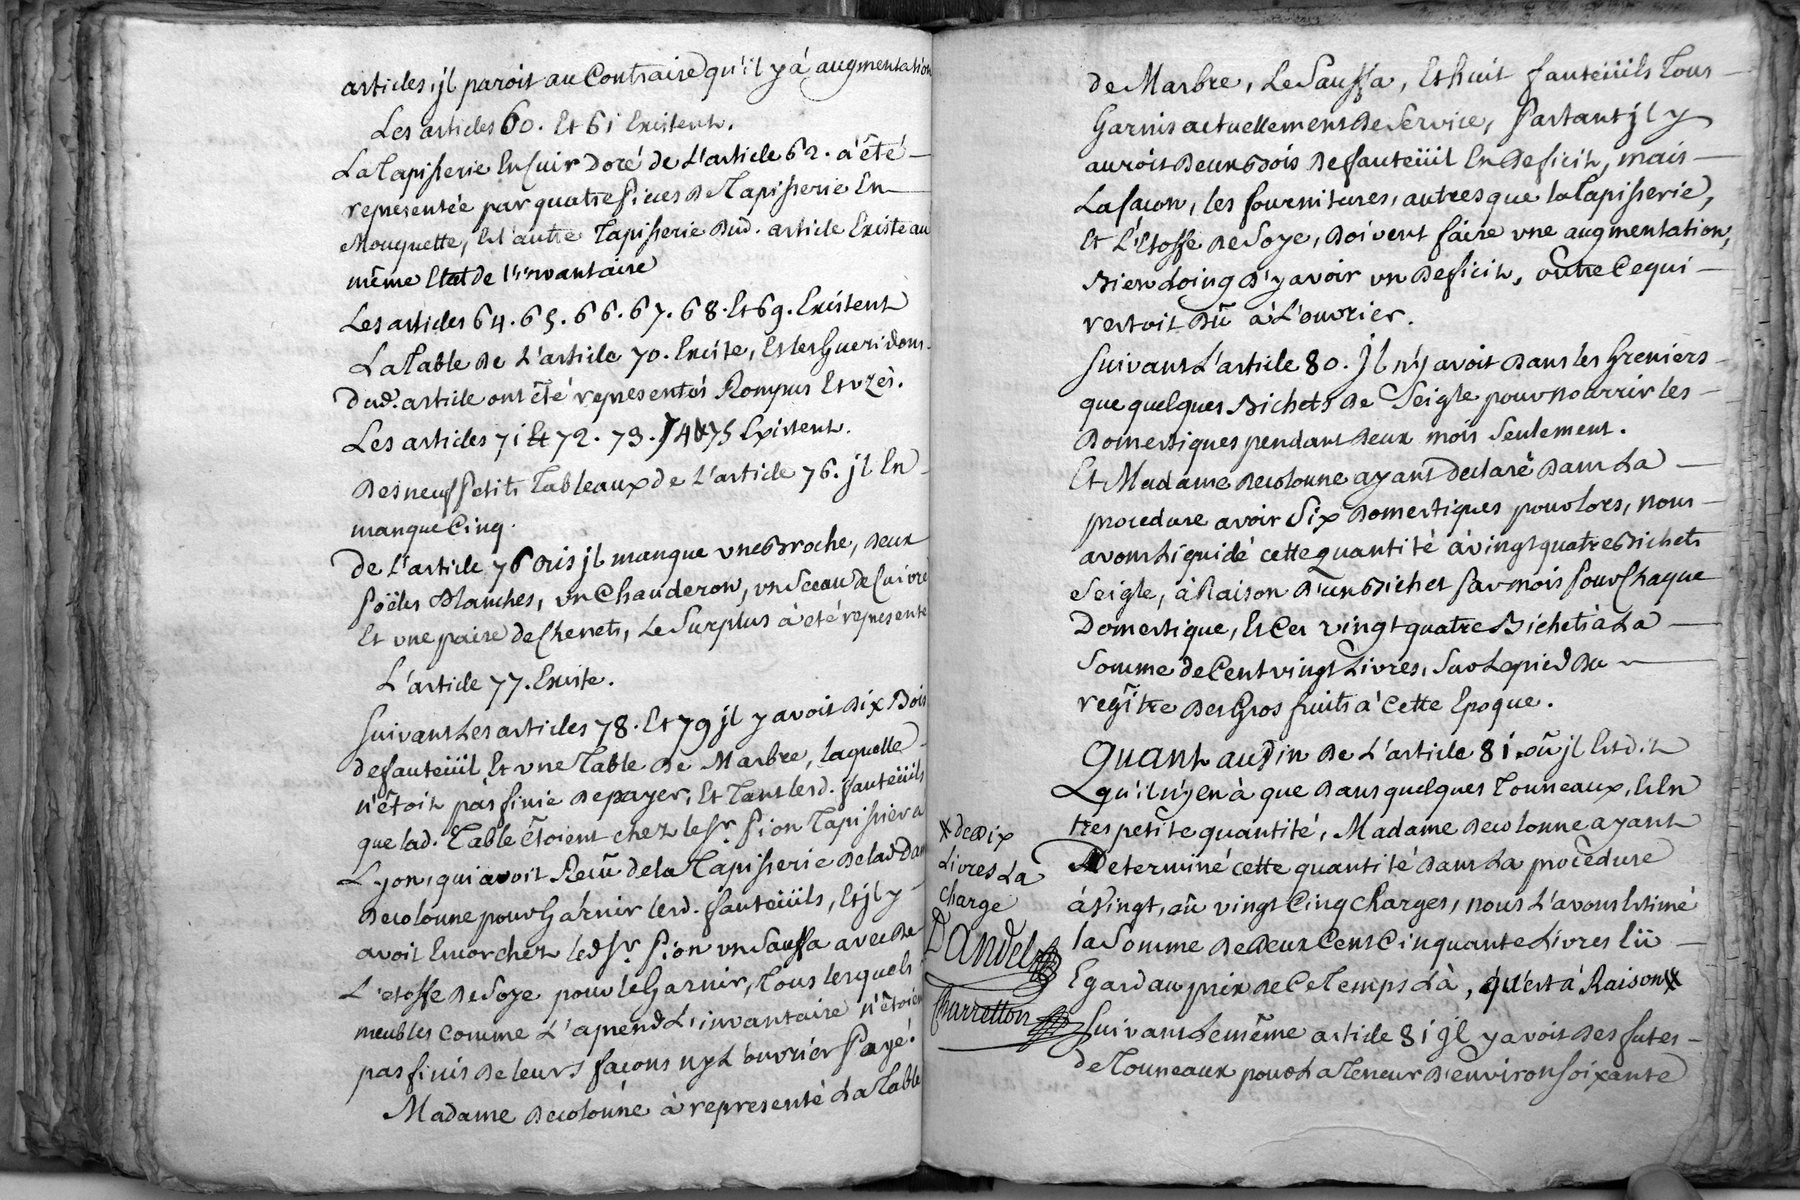 articles, jl paroit au Contraire qu'il y à augmentation
Les articles 60. Et 61 Existent.
La Tapisserie En Cuir Doré de L'article 62. à été
representée par quatre Pieces De Tapisserie En
Mouquette, Et l'autre Tapisserie Dud. article Existe au
même Etat de l'invantaire
Les articles 64. 65. 66. 67. 68. Et 69. Existent
La Table De L'article 70. Existe, Et les Gueridons
Dud. article ont êté representés Rompus Et Uzés.
Les articles 71 Et 72. 73. 74 & 75 Existent.
Des neuf Petits Tableaux de L'article 76. jl En
manque Cinq.
De L'article 76 Bis jl manque une Broche, Deux
Poëles Blanches, un Chauderon, un Sceau de Cuivre
Et une paire de Chenets, Le Surplus à eté representé
L'article 77. Existe.
Suivant Les articles 78. Et 79 jl y avoit Dix Bois
de fauteüil Et une Table De Marbre, laquelle
n'êtoit pas finie De payer, Et Tant lesd. fauteüils
que lad. Table êtoient chez le Sr. Pion Tapissier a
Lyon, qui avoit Recû de la Tapisserie De lad. Dame
Decolonne pour Garnir lesd. fauteüils, Et jl y
avoit Encor chez led. Sr. Pion un Sauffa avec De
L'etoffe De Soye pour le Garnir, Tous lesquels
meubles comme L'aprend L'invantaire n'êtoient
pas finis De leurs façons ny L'ouvrier Payé.
Madame Decolonne à representé La Table
de Marbre, Le Sauffa, Et huit fauteüils Tous
Garnis actuellement De Service, Partant jl y
auroit Deux Bois De fauteüil En Deficit, mais
La façon, les fournitures, autres que la Tapisserie,
Et L'Etoffe De Soye, Doivent faire une augmentation,
Bien Loing D'y avoir un Deficit, outre Ce qui
restoit Dû à L'ouvrier.
Suivant L'article 80. Jl n'y avoit Dans les Greniers
que quelques Bichets De Seigle pour nourrir les
Domestiques pendant Deux mois Seulement.
Et Madame Decolonne ayant Declaré Dans La
procedure avoir Six Domestiques pour lors, nous
avons Liquidé cette quantité à vingt quatre Bichets
Seigle, à Raison D'un Bichet Par mois Pour Chaque
Domestique, Et Ces vingt quatre Bichets à La
Somme de Cent vingt Livres, Sur Le pied Du
regître Des Gros fruits à Cette Epoque.
Quant au Vin De L'article 81. où jl Est dit
qu'il n'y en à que Dans quelques Tonneaux, Et En
tres petite quantité, Madame Decolonne ayant
Determiné cette quantité Dans La procedure
à Vingt, où vingt Cinq Charges, nous L'avons Estimé
la Somme De Deux Cent Cinquante Livres Eü
Egard au prix de Ce Temps Là, qu'est à Raison #
# de Dix
Livres La
charge
Dandel
Charretton
Suivant Le même article 81 jl y avoit Des futes
de Tonneaux pour La Teneur D'environ Soixante